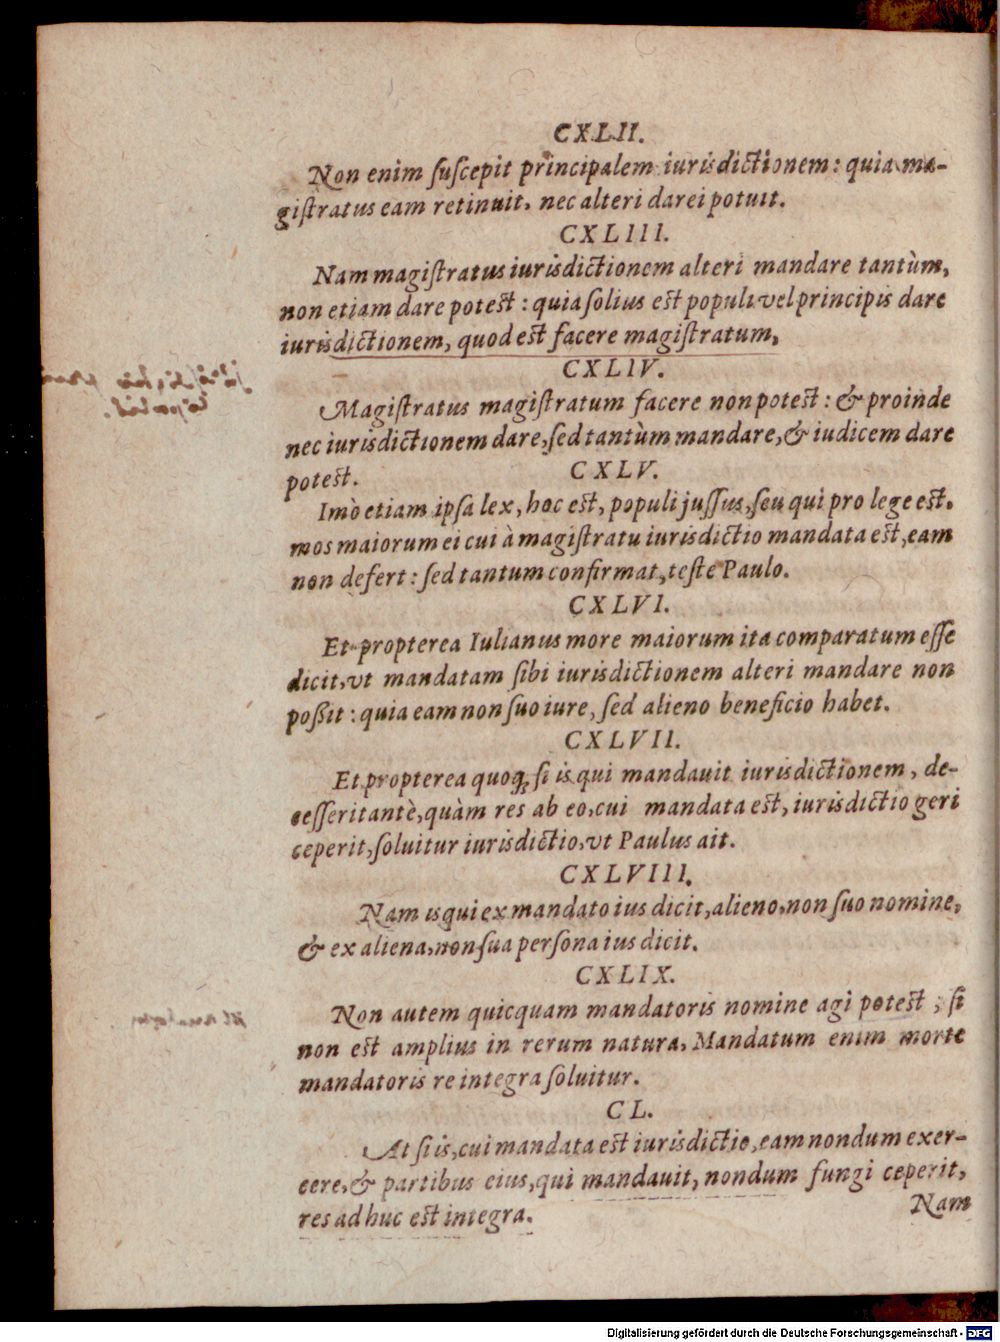 CXLII.
Non enim suscepit principalem iurisdictionem: quia ma-
gistratus eam retinuit, nec alteri darei potuit.
CXLIII.
Nam magistratus iurisdictionem alteri mandare tantùm,
non etiam dare potest: quia solius est populi vel principis dare
iurisdictionem, quod est facere magistratum.
CXLIV.
Magistratus magistratum facere non potest: & proinde
nec iurisdictionem dare, sed tantùm mandare, & iudicem dare
potest.
CXLV.
Imò etiam ipsa lex, hoc est, populi jussus, seu qui pro lege est.
mos maiorum ei cui à magistratu iurisdictio mandata est, eam
non defert: sed tantum confirmat, teste Paulo.
CXLVI.
Et propterea Iulianus more maiorum ita comparatum esse
dicit, vt mandatam sibi iurisdictionem alteri mandare non
poßit: quia eam non suo iure, sed alieno beneficio habet.
CXLVII.
Et propterea quoq; si is qui mandauit iurisdictionem, de-
cesserit antè, quàm res ab eo, cui mandata est, iurisdictio geri
ceperit, soluitur iurisdictio, vt Paulus ait.
CXLVIII.
Nam is qui ex mandato ius dicit, alieno, non suo nomine,
& ex aliena, non sua persona ius dicit.
CXLIX.
Non autem quicquam mandatoris nomine agi potest, si
non est amplius in rerum natura, Mandatum enim morte
mandatoris re integra soluitur.
CL.
At si is, cui mandata est iurisdictio, eam nondum exer-
cere, & partibus eius, qui mandauit, nondum fungi ceperit,
res adhuc est integra.
Nam
Digitalisierung gefördert durch die Deutsche Forschungsgemeinschaft - DFG